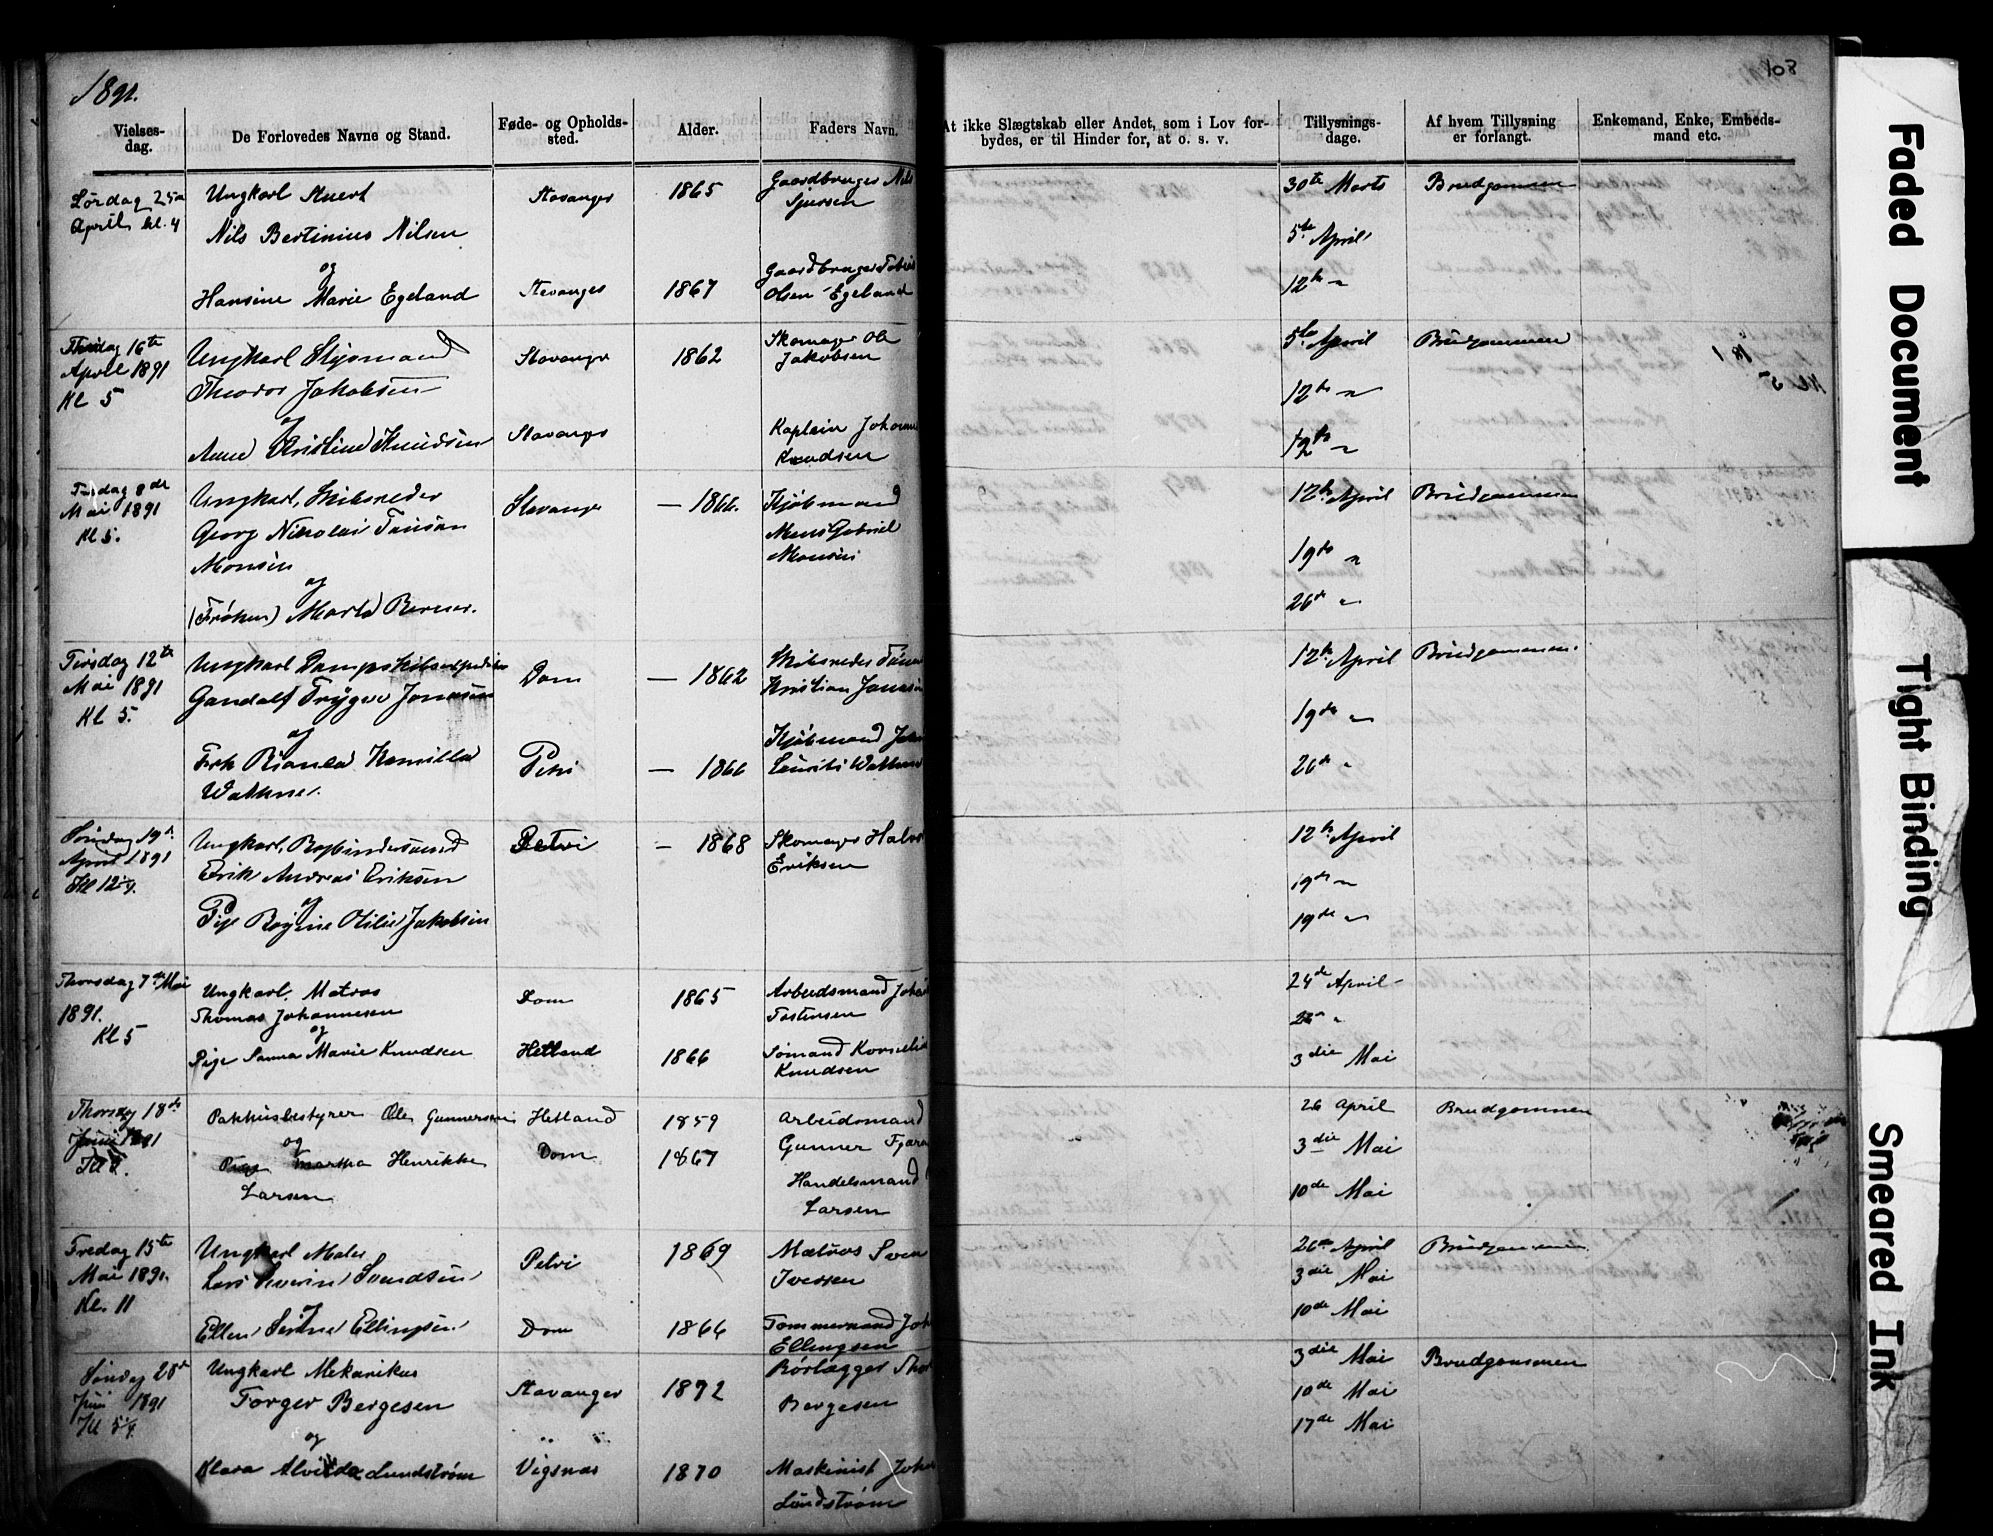 1891.
108
Vielses-dag.
De Forlovedes Navne og Stand.
Føde- og Opholds-sted.
Alder.
Faders Navn.
At ikke Slægtskab eller Andet, som i Lov for-
bydes, er til Hinder for, at o. s. v.
Tillysnings-dage.
Af hvem Tillysning
er forlangt.
Enkemand, Enke, Embeds-
mand etc.
Lørdag 25de
April kl. 4
Ungkarl
Nils Bertinius Nilsen
og
Hansine Marie Egeland
Stavanger
Stavanger
1865
1867
Gaardbruger Nils
Gaardbruger Tobias
Olsen Egeland
30te Marts
5te April
12te "
Brudgommen
16te
April 1891
Kl 5
Ungkarl Styrmand
Theodor Jakobsen
og
Kristine Knudsen
Stavanger
Stavanger
1862
Skomager Ole
Jakobsen
Kaptein Johann
Knudsen
5te April
12te "
"
Brudgommen
8de
Mai 1891
Kl 5.
Ungkarl, Skibsreder
Georg Nikolai
Monsen
og
(Frøken) Marta Berner.
Stavanger
— 1866.
Kjøbmand
Mons Gabriel
Monsen
12te April
19de "
26de "
Brudgommen
Tirsdag 12te
Mai 1891
Kl 5.
Ungkarl Dampskibsexpeditør
Gandolf Trygve Jonassen
og
Frk Bianca Kamilla
Wathne.
Dom
Petri
— 1862
— 1866
Skibsreder
Kristian Jonassen
Kjøbmand
Lauritz Wathne
12te April
19de "
26de "
Brudgommen.
Søndag 19de
April 1891
Kl 12¼.
Ungkarl, Bogbindersvend
Erik Andreas Eriksen
og
Pige Regine Otilie Jakobsen
Petri
— 1868
Skomager Halvor
Eriksen
12te April
19de "
19de "
Thorsdag 7de Mai
1891.
Kl 5
Ungkarl, Matros
Thomas Johannesen
og
Pige Sanna Marie Knudsen
Dom
Hetland
1865
1866
Arbeidsmand Johan
Tostensen
Sømand Kornelius
Knudsen
24de April
26de "
3die Mai
Thorsdg 18de
Juni 1891
Pakhusbestyrer Ole Gunnersen
og
Pige Martha Henrikke
Larsen
Hetland
Dom
1859
1867
Arbeidsmand
Gunner
Handelsmand
Larsen
26 April
3die Mai
10de Mai
Brudgommen
Fredag 15te
Mai 1891.
Kl. 11
Ungkarl Maler
Lars Severin Svendsen
og
Ellen Serine Ellingsen
Petri
Dom
1869
1866
Matros Sven
Iversen
Tømmermand Joh
Ellingsen
26de April
3die Mai
10de Mai
Brudgommen
Søndag 28de
Juni 1891
Kl 5¼.
Ungkarl Mekanikus
Torger Bergesen
og
Klara Alvilda Lundstrøm
Stavanger
" "
Vigsnæs
1872
1870
Rørlægger Thor
Bergesen
Maskinist Johan
Lundstrøm
3die Mai
10de Mai
17de Mai
Brudgommen
Faded Document
Tight Binding
Smeared Ink